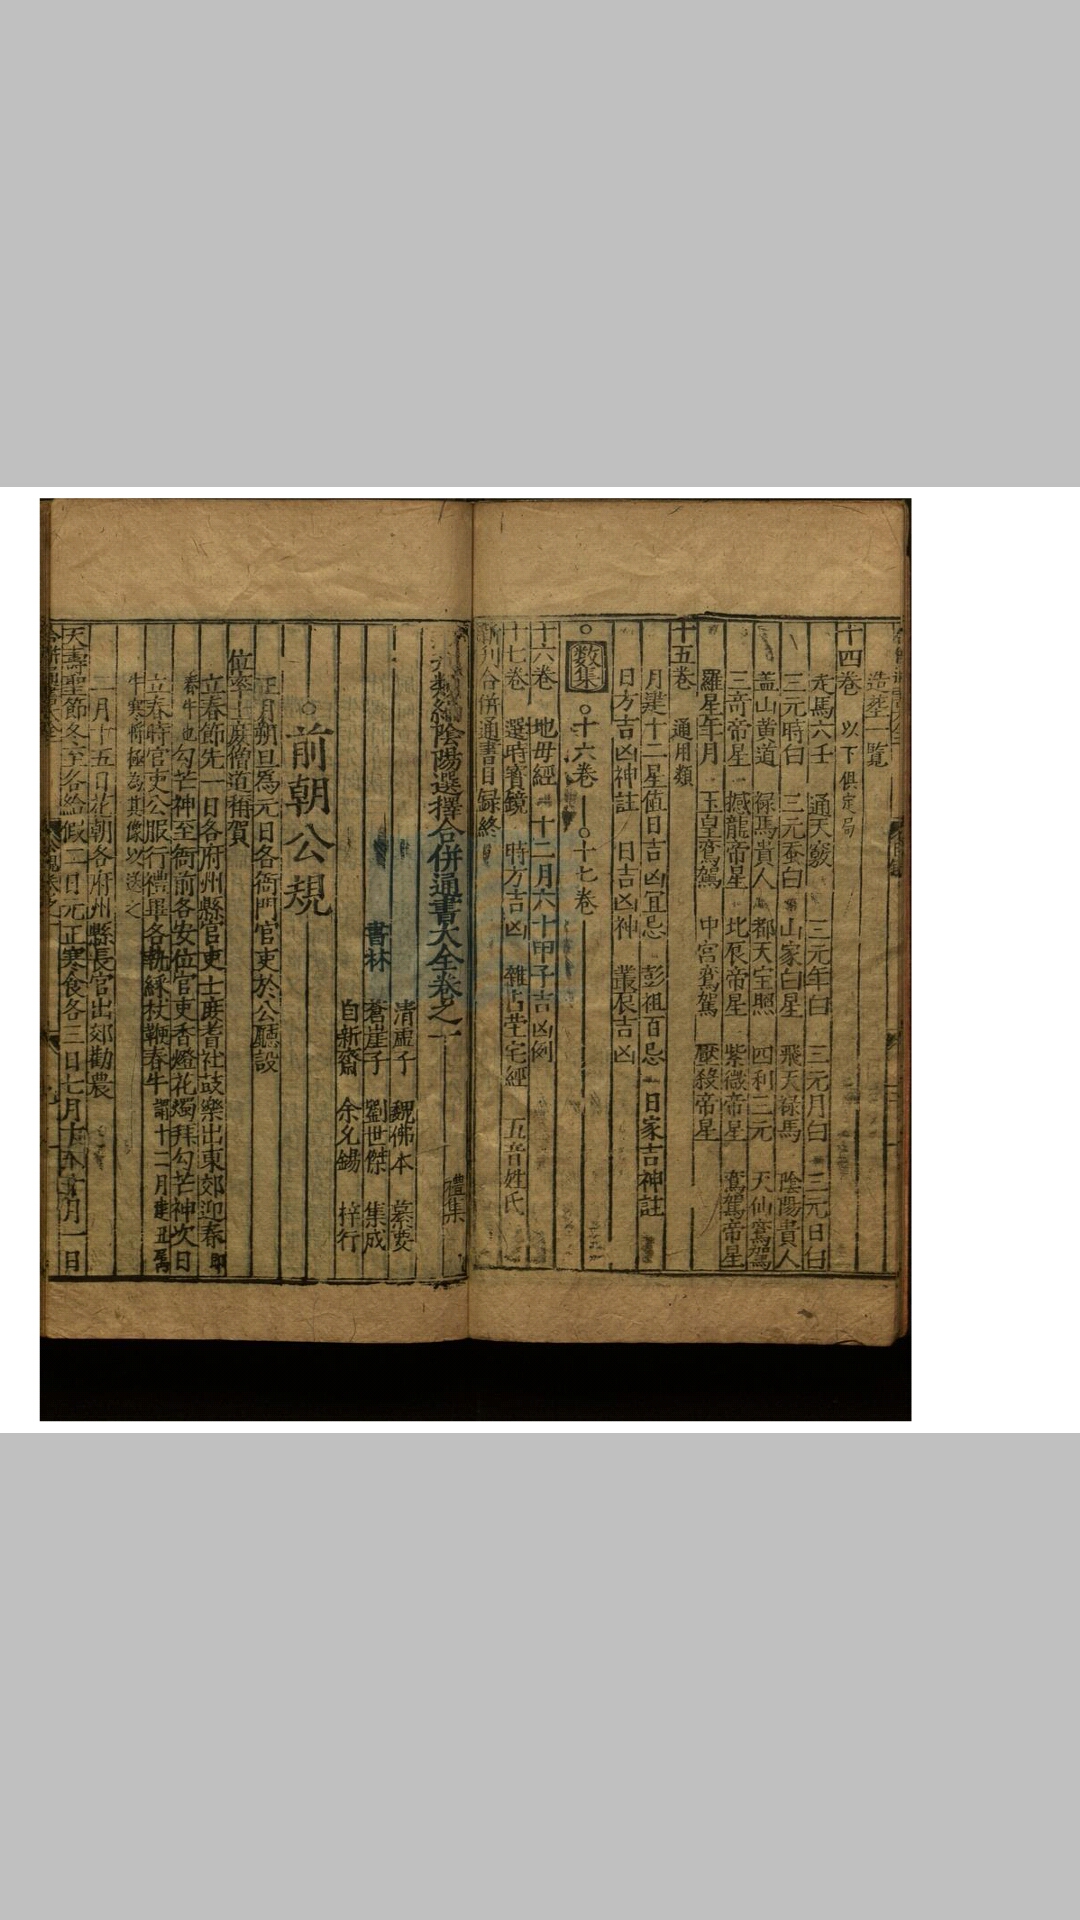 造塟一覧
十四卷 以下俱定局
走馬六壬 通天竅 三元年白 三元月白 三元日白
三元時白 三元蚕白 山家白星 飛天祿馬 陰陽貴人
盖山黄道 祿馬貴人 都天宝照 四利三元 天仙鸞駕
三奇帝星 撼龍帝星 北辰帝星 紫微帝星 鸞駕帝星
羅星年月 玉皇鸞駕 中宮鸞駕 壓殺帝星
十五卷 通用類
月建十二星值日吉凶宜忌 彭祖百忌 日家吉神註
日方吉凶神註 日吉凶神 叢辰吉凶
○數集○十六卷 ○十七卷
十六卷 地母經 十二月六十甲子吉凶例
十七卷 選時寳鏡 時方吉凶 雜占塋宅經 五音姓氏
新刋合併通書目録終
類編陰陽選擇合併通書大全卷之一 禮集
清虛子 魏佛本 纂要
書林 蒼崖子 劉世傑 集成
自新齋 余允錫 梓行
○前朝公規
正月朔旦為元日各衙門官吏於公廳設
位率士庶僧道稱賀
立春節先一日各府州縣官吏士庶耆社鼓樂出東郊迎春即
春牛也勾芒神至衙前各安位官吏香燈花燭拜勾芒神次日
立春時官吏公服行禮畢各執綵杖鞭春牛謂十二月建丑屬
牛寒將極為其像以送之
二月十五日花朝各府州縣長官出郊勸農
天壽聖節冬至各給假二日元正寒食各三日七月十五十月一日